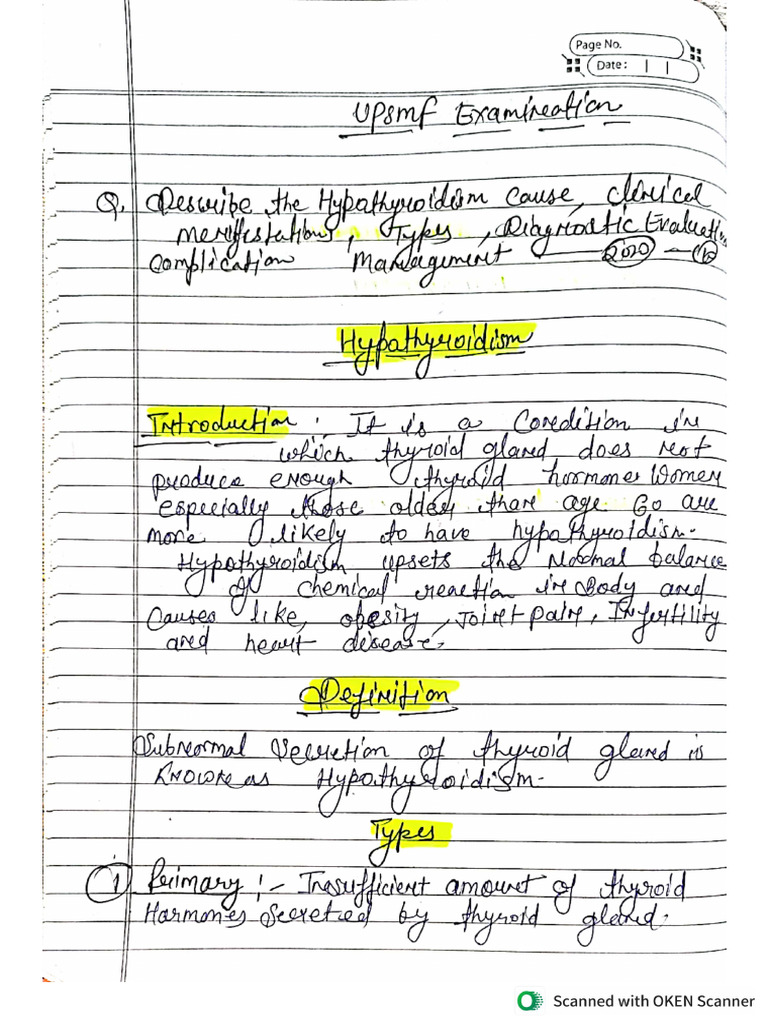 Page No.
Date:
UPSMF Examineation
Q. Describe the Hypothyroidism cause, clinical
menifistations, Types, Diagnostic Evaluation
complication Management 2020
Hypothyroidism
Introduction : It is a Condition in
which thyroid gland does not
produce enough thyroid hormones Women
especially those older than age 60 are
more likely to have hypothyroidism.
Hypothyroidism upsets the Normal balance
of chemical reaction in Body and
Causes like, obesity, Joint pain, Infertility
and heart disease.
Definition
Subnormal Secretion of thyroid gland is
known as Hypothyroidism.
Types
1 Primary :- Insufficient amount of thyroid
Harmones Secretied by thyroid gland.
Scanned with OKEN Scanner